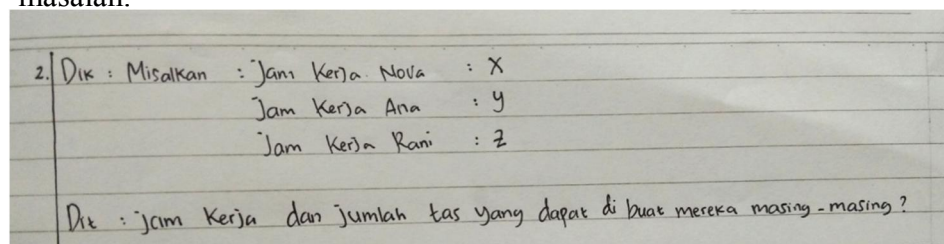 masalah.
2. Dik : Misalkan : Jam Kerja Nova : X
Jam Kerja Ana : y
Jam Kerja Rani : z
Dit : jam Kerja dan jumlah tas yang dapat di buat mereka masing-masing?